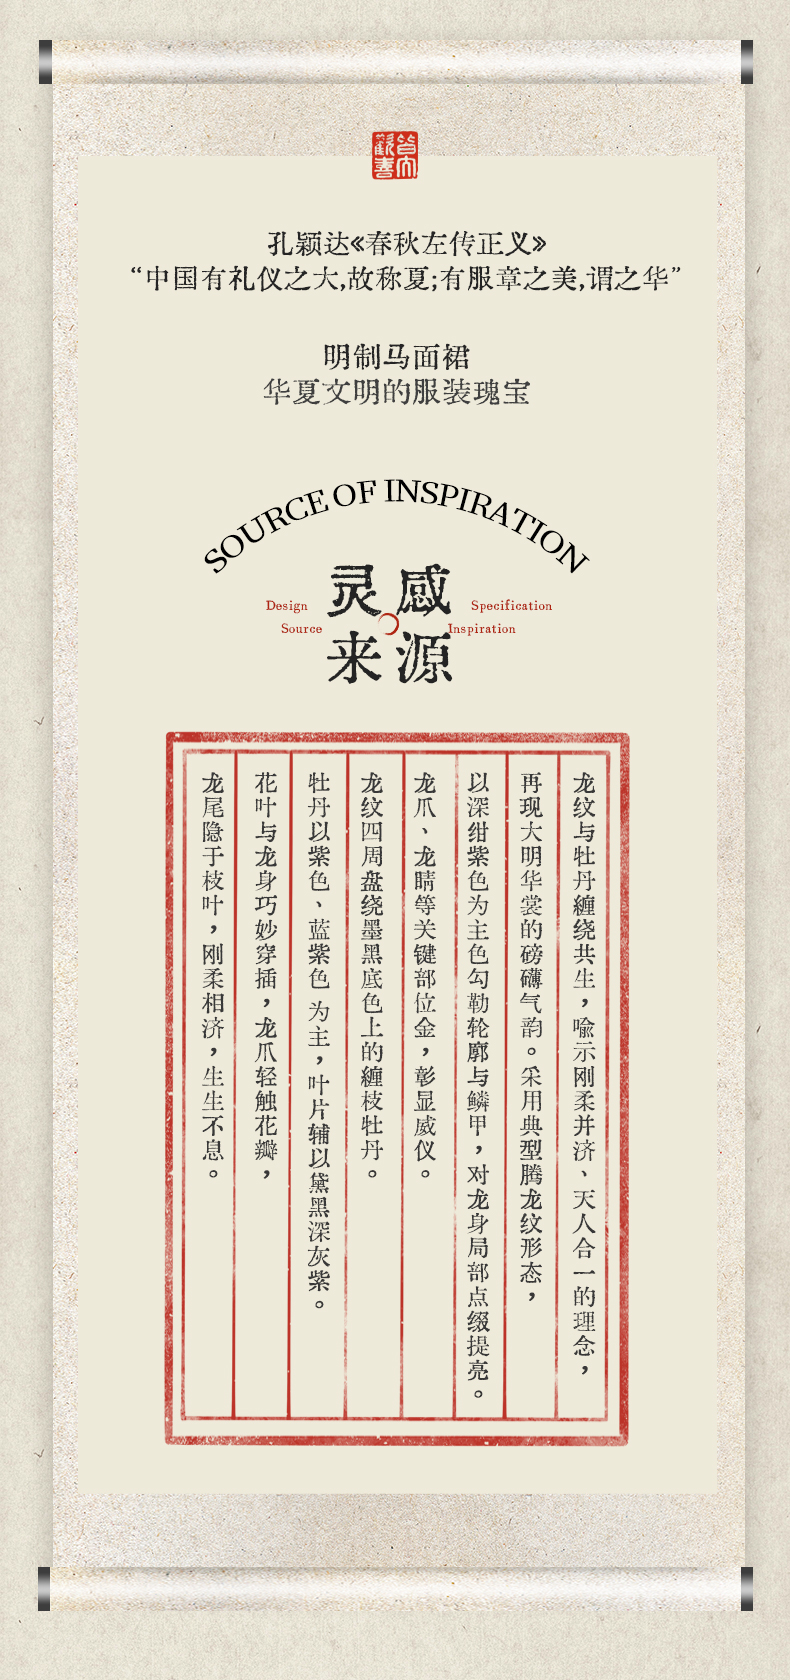 孔颖达《春秋左传正义》
“中国有礼仪之大,故称夏;有服章之美,谓之华”
明制马面裙
华夏文明的服装瑰宝
SOURCE OF INSPIRATION
灵感
来源
Design
Source
Specification
Inspiration
龙纹与牡丹纏绕共生，喻示刚柔并济、天人合一的理念，
再现大明华裳的磅礴气韵。采用典型腾龙纹形态，
以深绀紫色为主色勾勒轮廓与鳞甲，对龙身局部点缀提亮。
龙爪、龙睛等关键部位金，彰显威仪。
龙纹四周盘绕墨黑底色上的纏枝牡丹。
牡丹以紫色、蓝紫色 为主，叶片辅以黛黑深灰紫。
花叶与龙身巧妙穿插，龙爪轻触花瓣，
龙尾隐于枝叶，刚柔相济，生生不息。